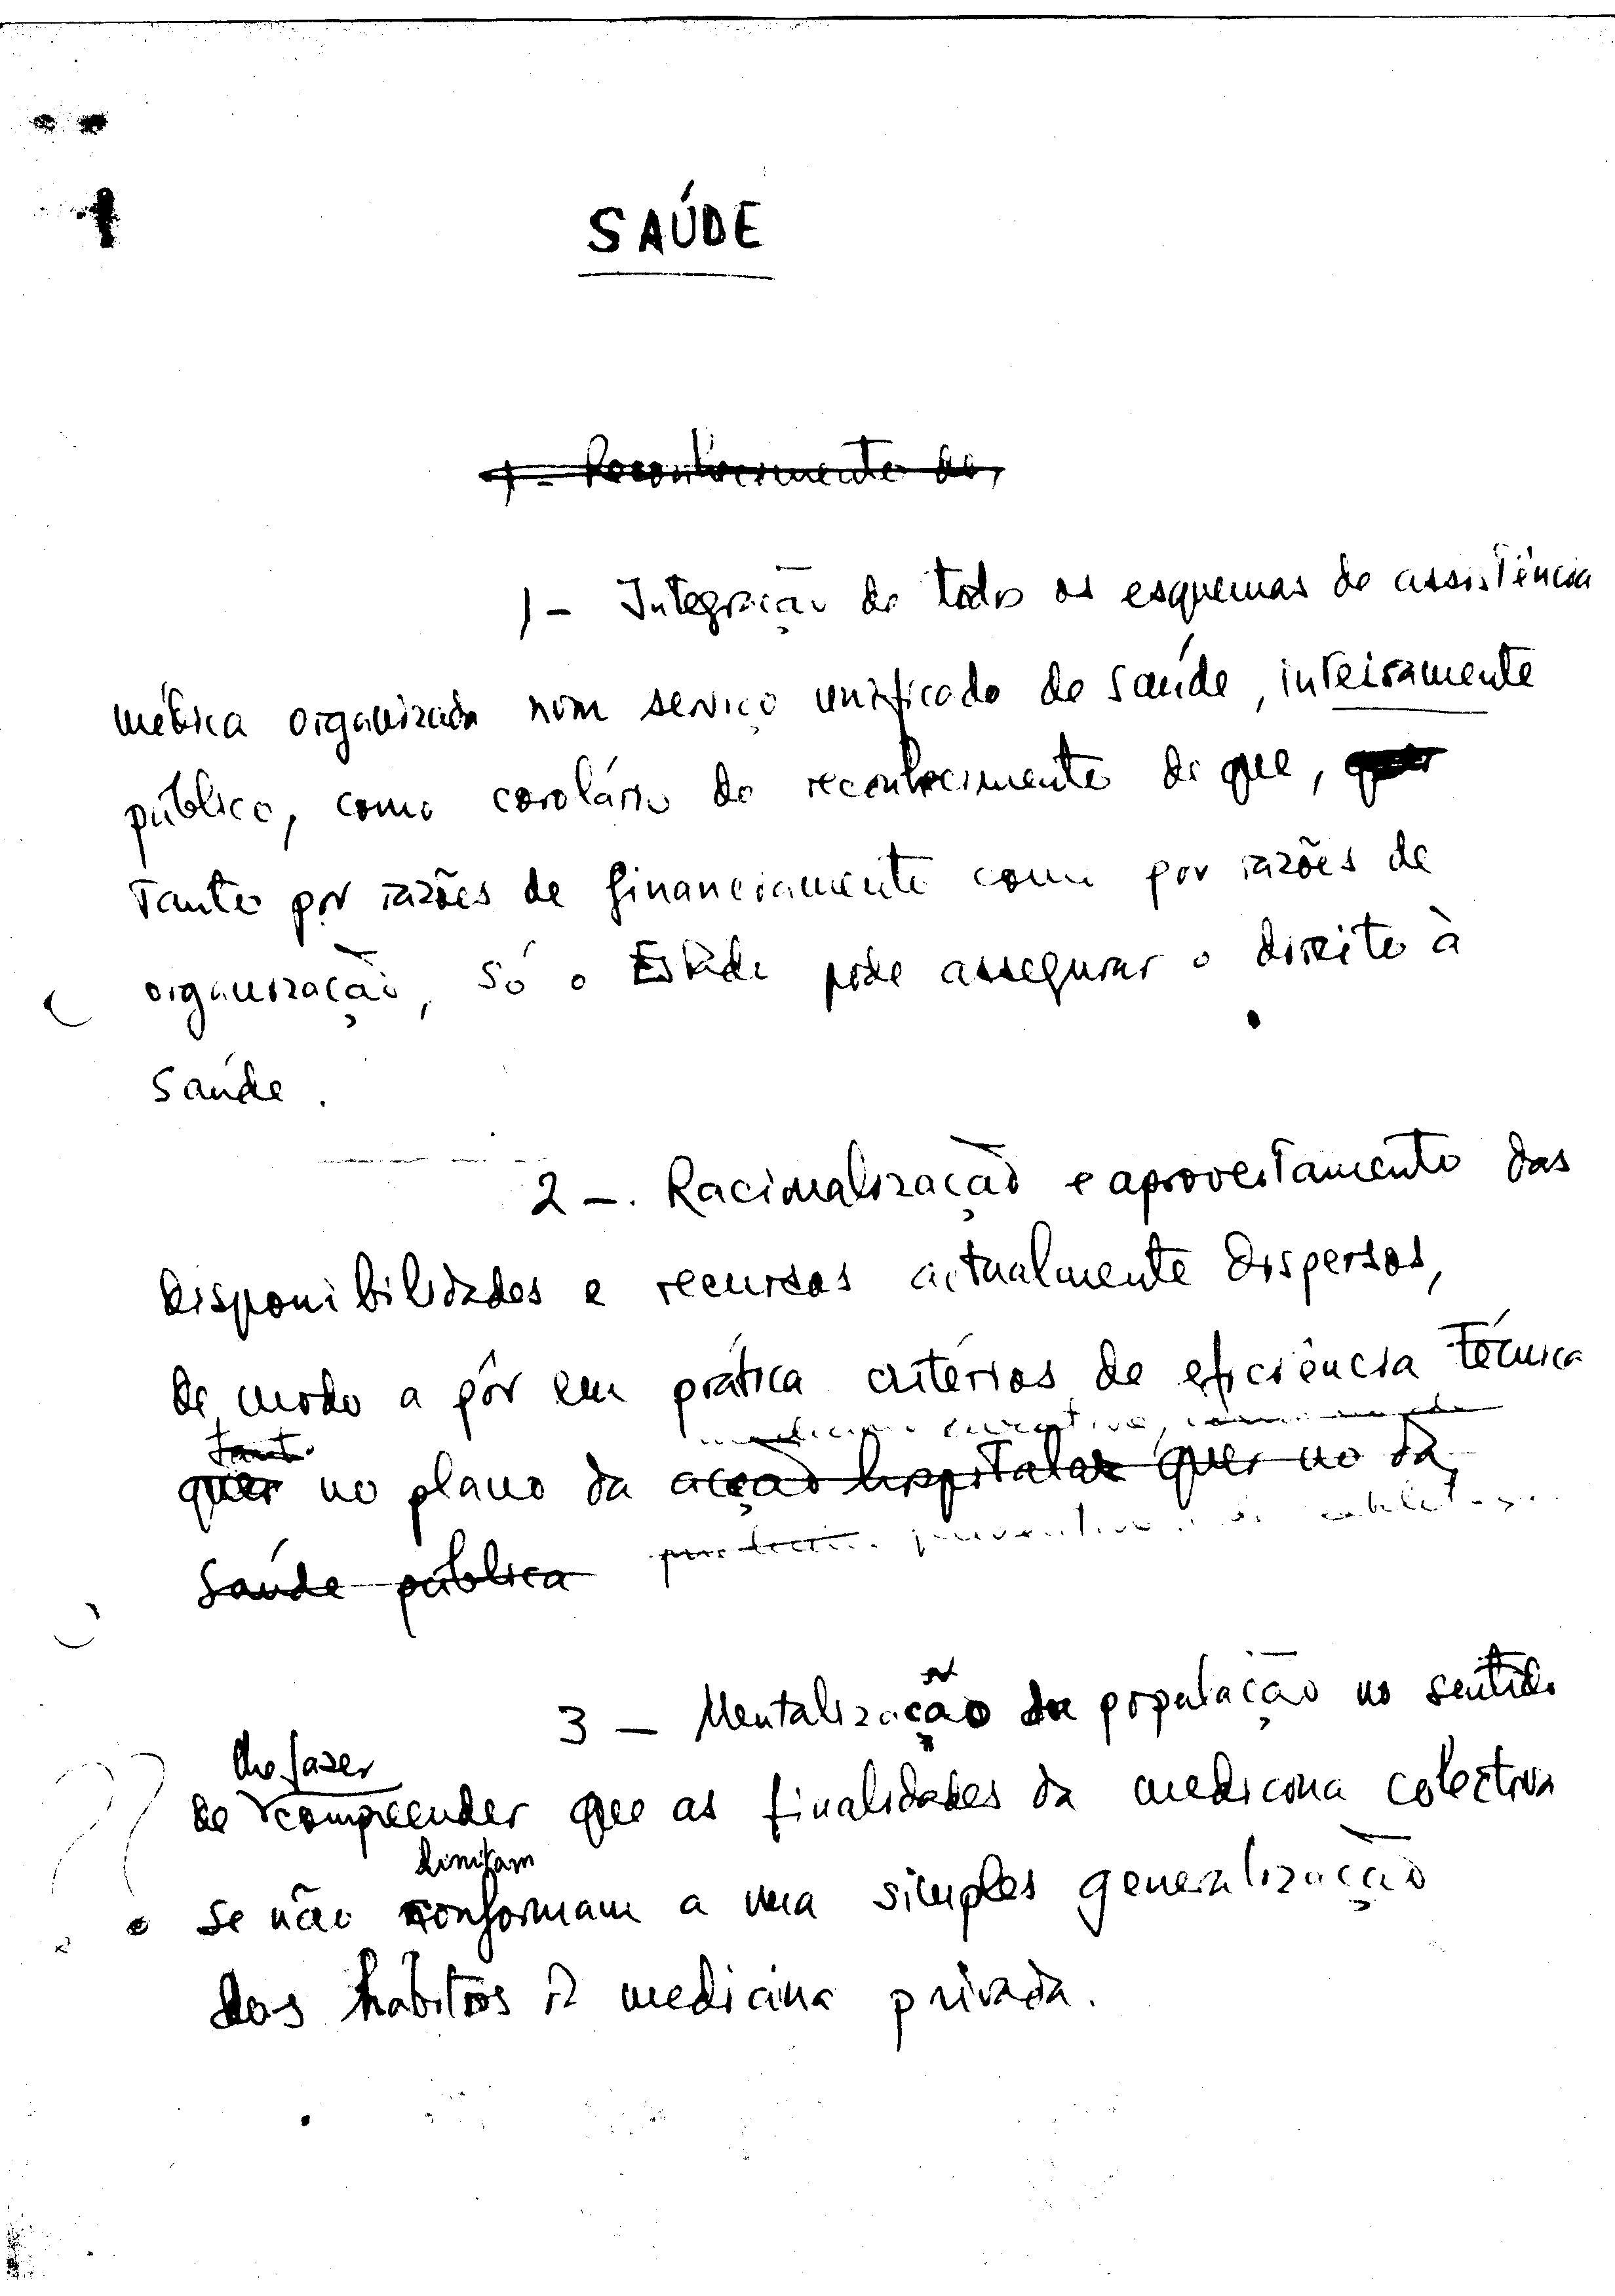 SAÚDE
1 - Reconhecimento do,
1 - Integração de todos os esquemas de assistência
médica organizada num serviço unificado de saúde, inteiramente
público, como corolário do reconhecimento de que, quer
tanto por razões de financiamento como por razões de
organização, só o Estado pode assegurar o direito à
saúde.
2 - . Racionalização e aproveitamento das
disponibilidades e recursos actualmente dispersos,
de modo a pôr em prática critérios de eficiência técnica
medicina curativa,
tanto
quer no plano da acção hospitalar quer no da
saúde pública preventiva
3 - Mentalização da população no sentido
lhe fazer
de compreender que as finalidades da medicina colectiva
limitam
se não conformam a uma simples generalização
dos hábitos da medicina privada.
??